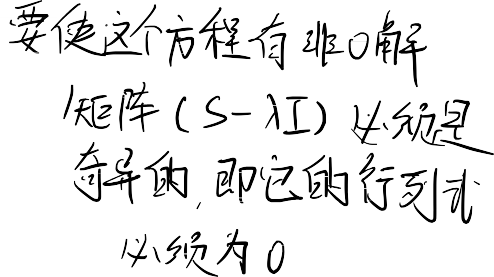 要使这个方程有非0解
矩阵(S-λI)必须是
奇异的,即它的行列式
必须为0